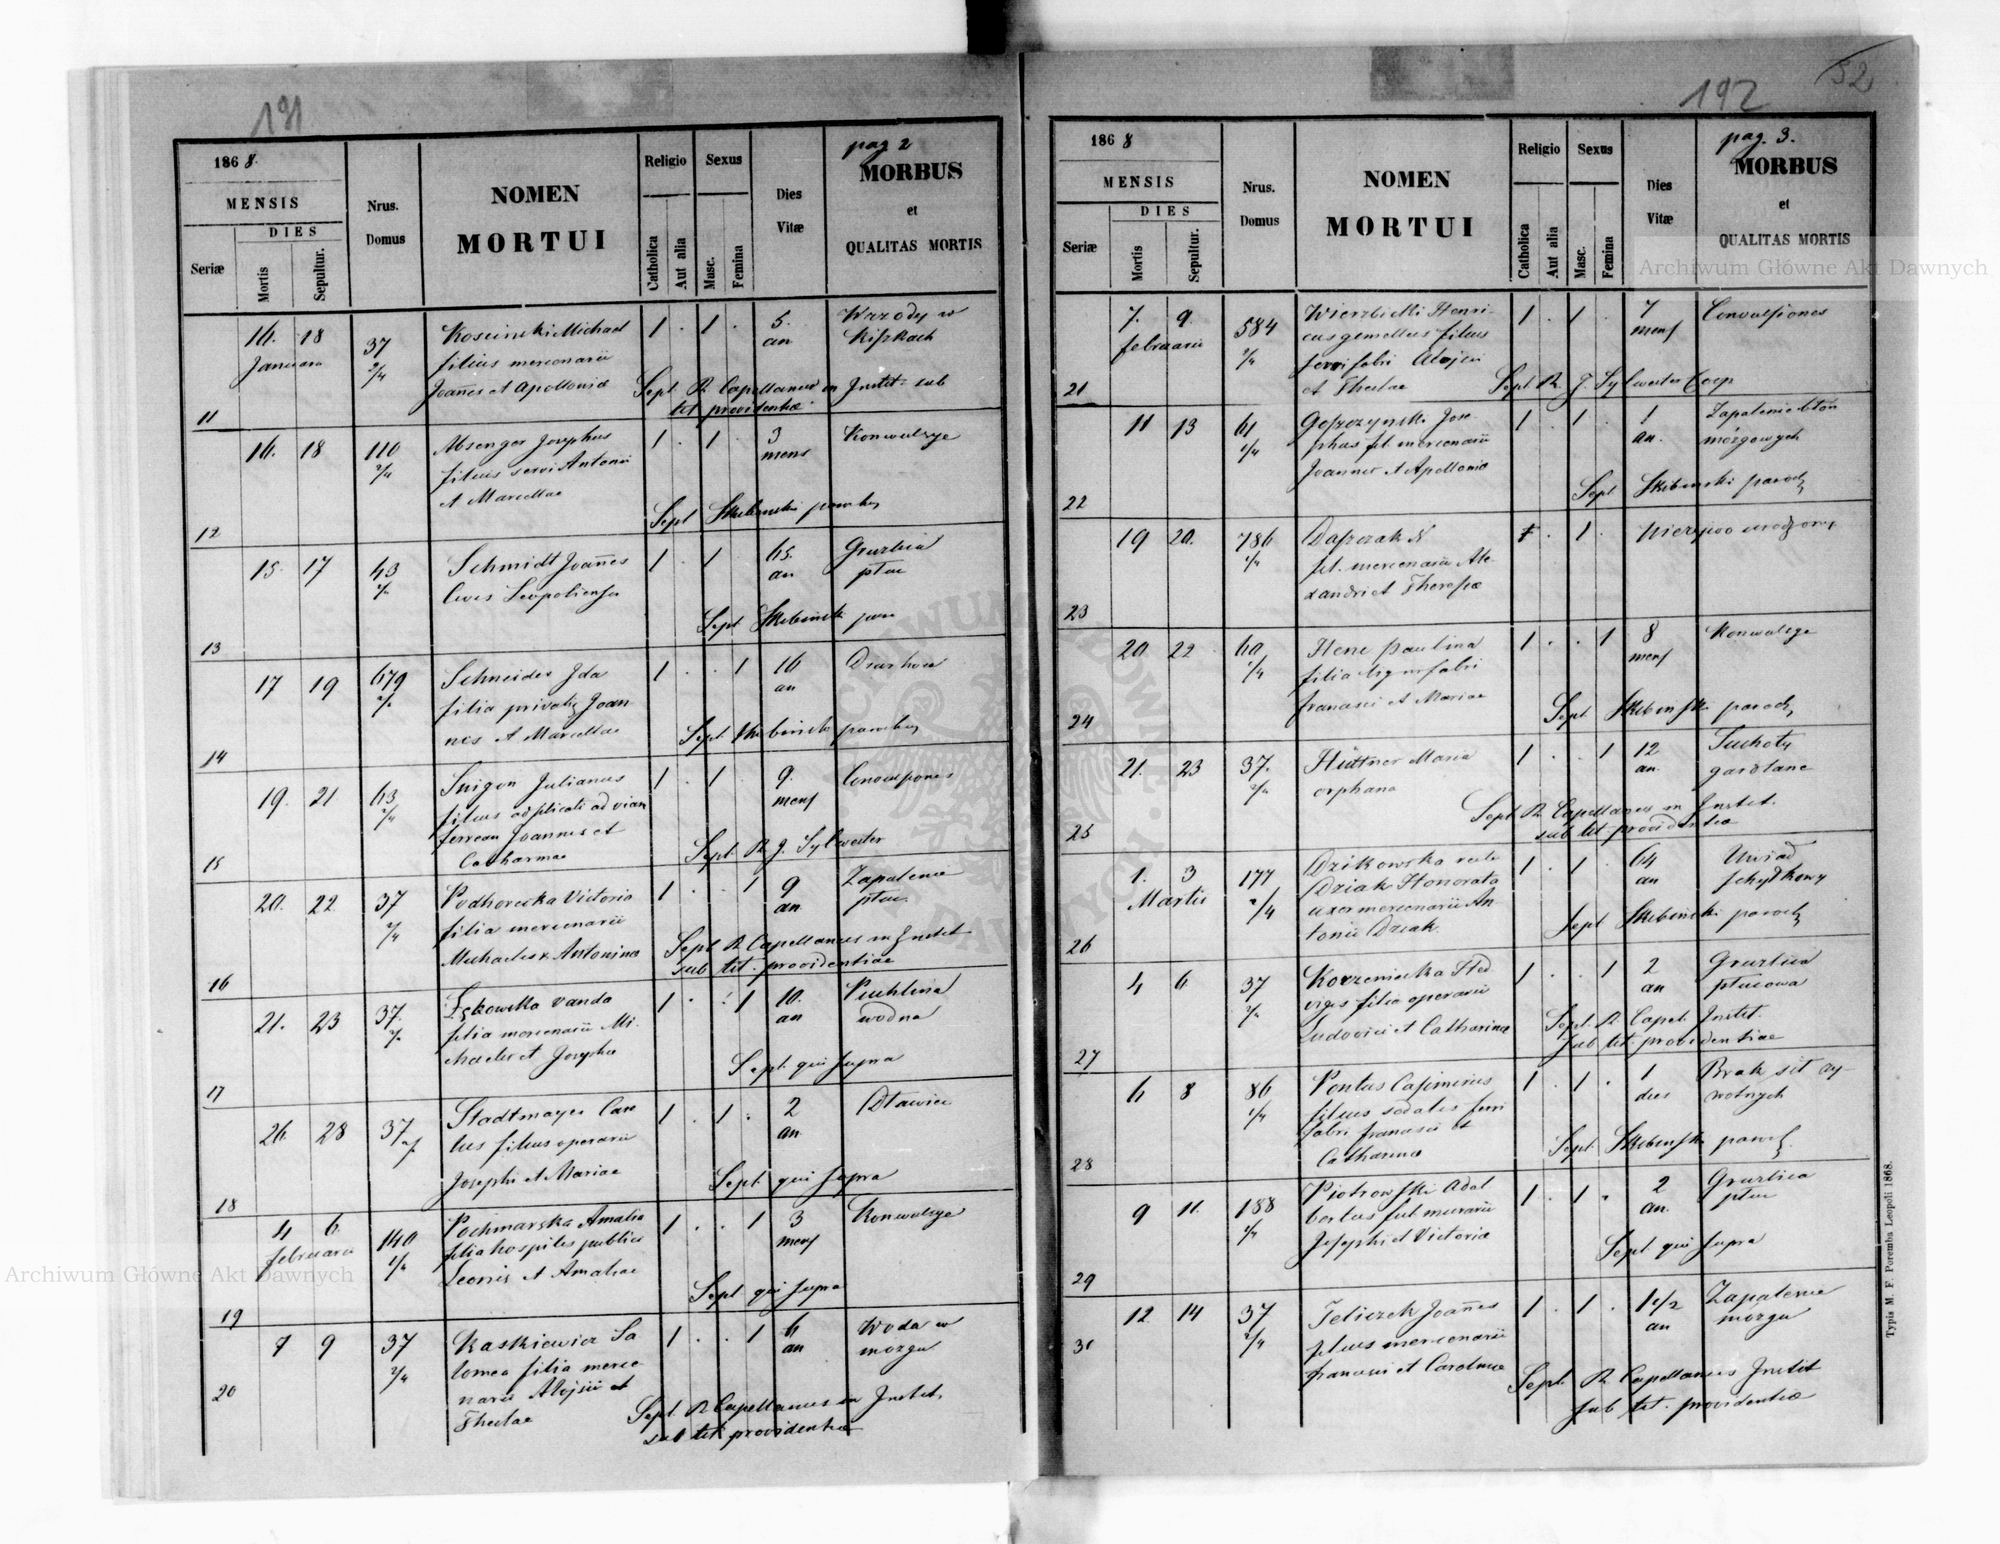 191
1868.
MENSIS
DIES
Seriæ
Mortis
Sepultur.
Nrus.
Domus
NOMEN
MORTUI
Religio
Catholica
Aut alia
Sexus
Masc.
Femina
Dies
Vitæ
pag 2
MORBUS
et
QUALITAS MORTIS
16. 18 37 Michael 1 . 1 . 5. Wrzody w
Januarii 2/4 filius mercenarii an Kiszkach
Joañes et Apolloniæ Sept R. Capellanus in Instit: sub
11 tit providentiæ
16. 18 110 Josephus 1 . 1 . 3 Konwulsye
2/4 filius servi Antonii mens
et Marcellae
12 Sept Skibinski parochus
15. 17 43 Schmidt Joañes 1 . 1 . 65. Gruzlica
2/4 Civis Leopoliensis an płuc
13 Sept Skibinski
17 19 679 Schneider Ida 1 . . 1 16
2/4 filia Joan an
nis et Marcellae Sept Skibinski parochus
14
19. 21. 63 Julianus 1 . 1 . 9. Convulsiones
2/4 filius ad viam mens
ferream Joannis et
15 Catharinae Sept. R. J. Sylwester
20. 22 37 Podhorecka Victoria 1 . . 1 9 Zapalenie
2/4 filia mercenarii an płuc.
Michaelis & Antonina Sept R Capellanus in Instit
16 sub tit. providentiae
21. 23 37. Vanda 1 . . 1 10. Puchlina
2/4 filia mercenarii Mi- an wodna
chaelis et Josepha Sept. qui supra
17
26. 28 37 2/4 Stadtmayer Caro 1 . 1 . 2 Dławiec
lus filius operarii an
Josephi et Mariae Sept. qui supra
18
4 6. 140 Pochmarska Amalia 1 . . 1 3 Konwulsye
februarii 2/4 filia hospitis publici mens
Leonis et Amaliae Sept qui supra
19
7 9 37 Kaskiewicz Sa 1 . . 1 6 Woda w
2/4 lomea filia merce an mozgu
20 narii Alojsii et
Theclae Sept. R Capellanus in Instit.
sub tit providentiæ
192
52
1868
MENSIS
DIES
Seriæ
Mortis
Sepultur.
Nrus.
Domus
NOMEN
MORTUI
Religio
Catholica
Aut alia
Sexus
Masc.
Femina
Dies
Vitæ
pag. 3.
MORBUS
et
QUALITAS MORTIS
7. 9. 584 Wierzbicki Henri- 1 . 1 . 7 Convulsiones
februarii 2/4 cus gemellus filius mens
fabri Alojsii
21 et Theclae Sept R. J. Sylwester Coop
11 13 61 Goszczynski Jose- 1 . 1 . 1 Zapalenie błon
2/4 phus fil. mercenarii an. mózgowych
Joannes et Apollonia
22 Sept Skibinski paroch
19 20. 786 Daszczak N . 1 .
2/4 fil. mercenarii Ale-
xandri et Theresæ
23
20 22 60 Paulina 1 . . 1 8 Konwulsye
2/4 filia fabri mens
francisci et Mariae
24 Sept Skibinski paroch
21. 23 37. Hüttner Maria 1 . . 1 12 Suchoty
2/4 orphana an. gardlane
Sept R. Capellanus in Instit.
25 sub tit providentiæ
1. 3 177 Dzikowska recte 1 . 1 . 64 Uwiąd
Martii 2/4 Dziak Honorata an schyłkowy
uxor mercenarii An
26 tonii Dziak. Sept Skibinski paroch
4 6 37 Hed 1 . . 1 2 Gruzlica
2/4 vigis filia operarii an płucowa
Ludovici et Catharinæ Sept. R. Capel. Instit.
27 sub tit providentiae
6 8 86 Pontus Casimirus 1 . 1 . 1 Brak sił ży-
2/4 filius sodalis ferri dies wotnych
fabri francisci et
28 Catharinæ Sept Skibinski paroch
9 11. 188 Piotrowski Adal 1 . 1 . 2 Gruzlica
2/4 bertus fil murarii an. płuc
Josephi et Victoria
29 Sept qui supra
12 14 37 Teliczek Joañes 1 . 1 . 1 1/2 Zapalenie
30 2/4 filius mercenarii an mózgu
francisci et Carolinæ
Sept. R Capellanus Instit
sub tit. providentiæ
Typis M. F. Poremba Leopoli 1868.
Archiwum Główne Akt Dawnych
Archiwum Główne Akt Dawnych